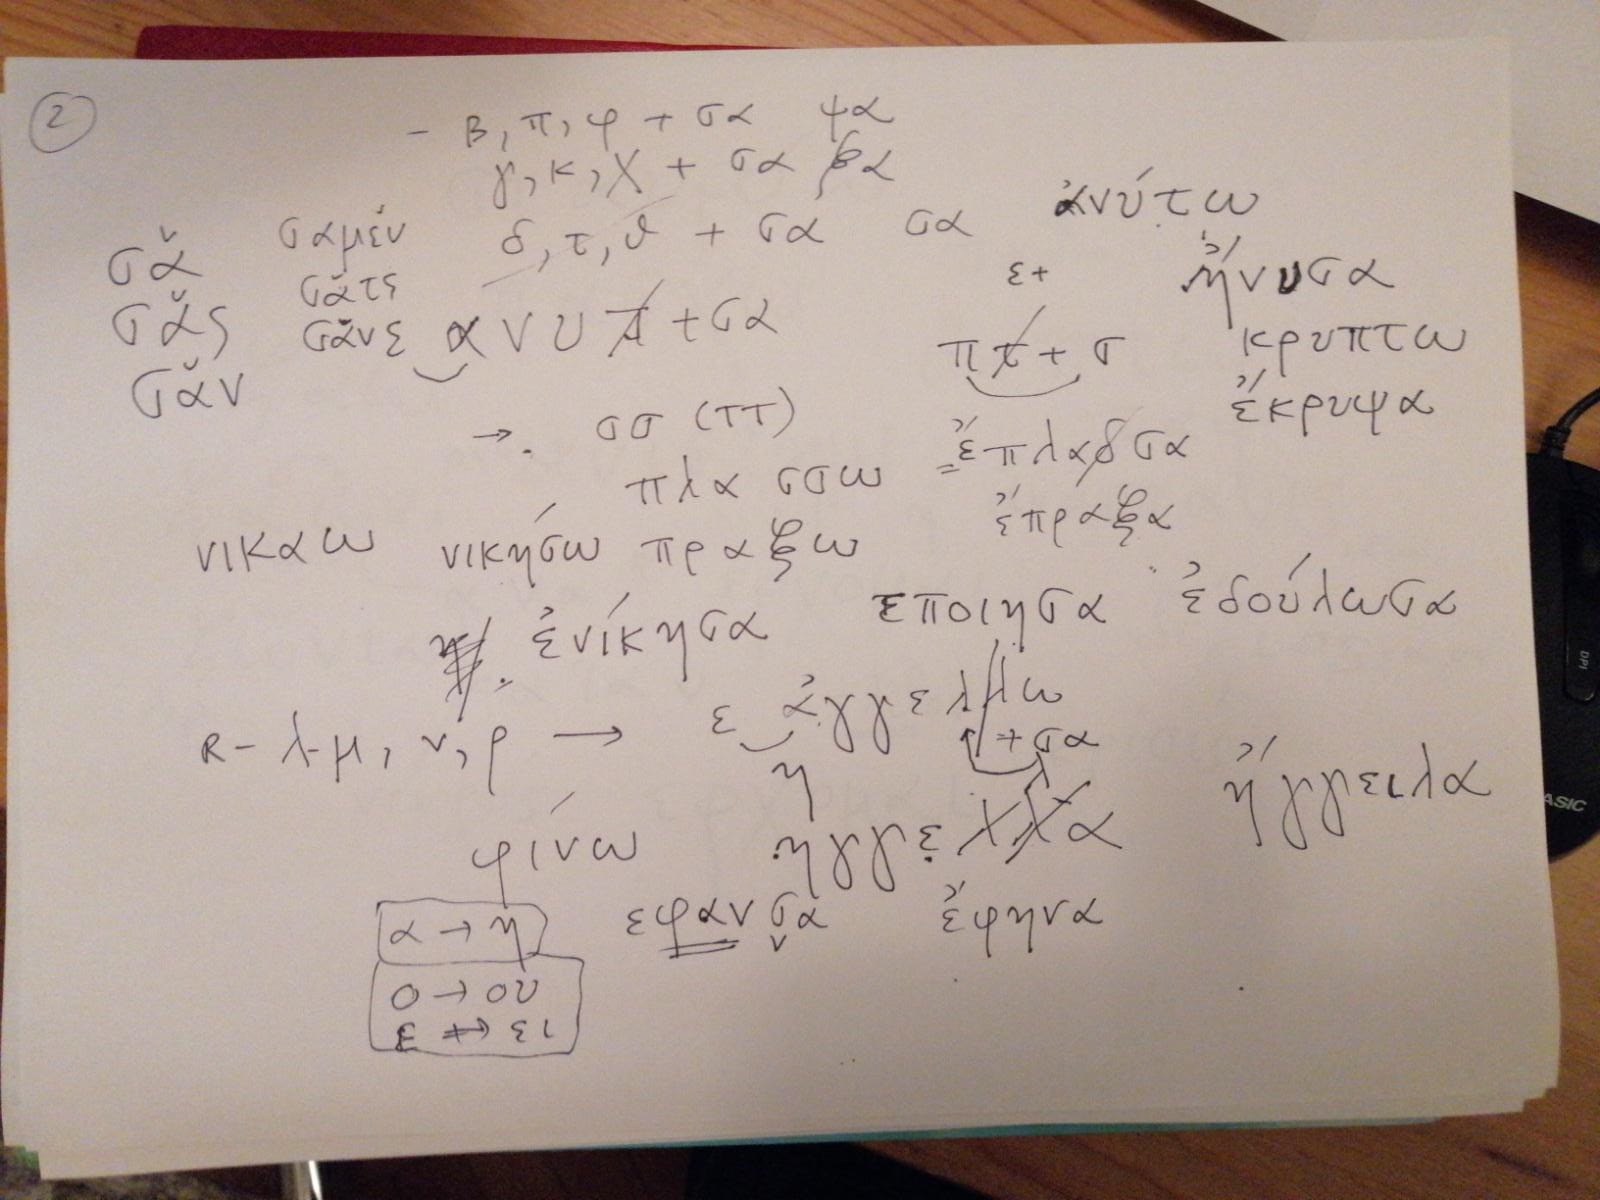 2
- β, π, φ + σα ψα
γ, κ, χ + σα ξα
δ, τ, θ + σα σα
ἀνύτω
σᾰ σαμεν
σᾰς σᾰτε
σᾰν σᾰνε
ανυτ + σα
ε+
ἤνυσα
πτ + σ
κρυπτω
ἔκρυψα
→. σσ (ττ)
πλα σσω
= ἔπλαδσα
ἔπραξα
νικαω νικήσω πραξω
ἐνίκησα εποιησα ἐδούλωσα
R - λ - μ, ν, ρ → ε ἀγγελλω
+ σα
η λ
ηγγελλα
ἤγγειλα
φίνω
εφανσα ἔφηνα
α → η
ο → ου
ε ει
DPI
ASIC